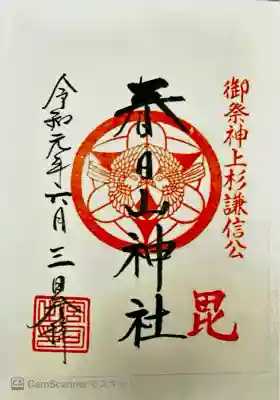 御祭神上杉謙信公
毘
春日山神社
令和元年六月三日奉拝
CS CamScannerでスキャン